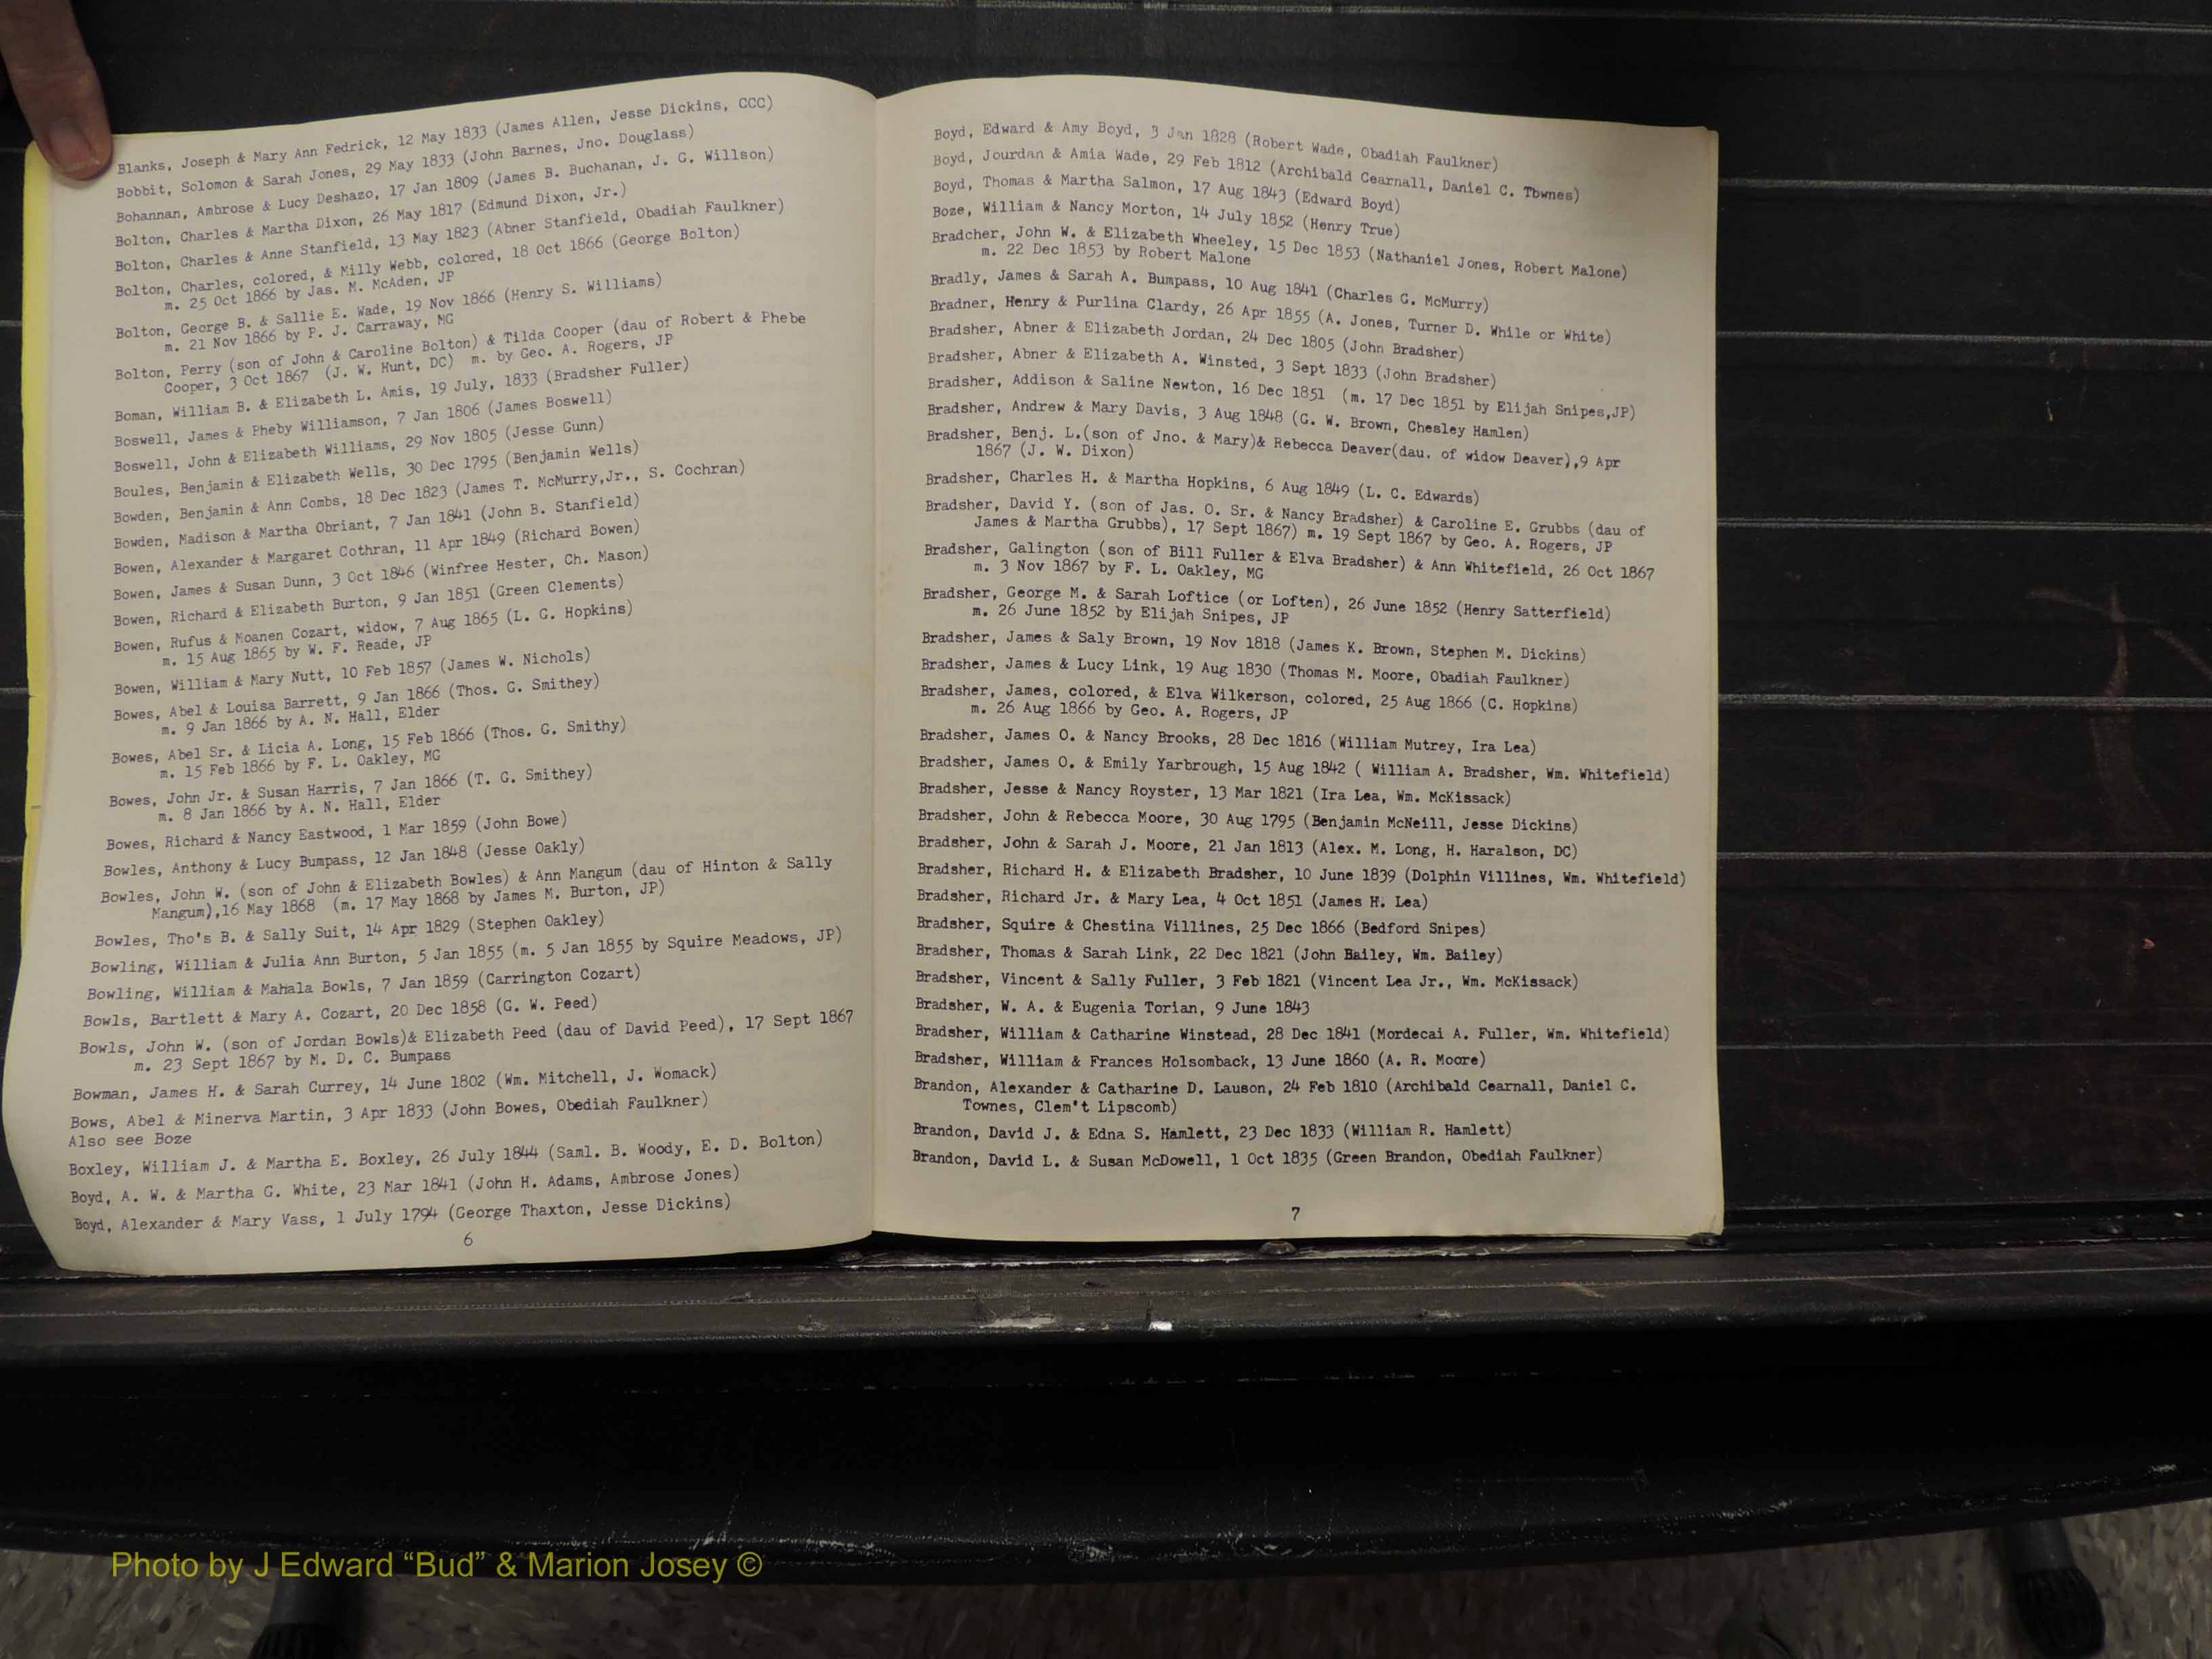 Blanks, Joseph & Mary Ann Fedrick, 12 May 1833 (James Allen, Jesse Dickins, CCC)
Bobbit, Solomon & Sarah Jones, 29 May 1833 (John Barnes, Jno. Douglass)
Bohannan, Ambrose & Lucy Deshazo, 17 Jan 1809 (James B. Buchanan, J. G. Willson)
Bolton, Charles & Martha Dixon, 26 May 1817 (Edmund Dixon, Jr.)
Bolton, Charles & Anne Stanfield, 13 May 1823 (Abner Stanfield, Obadiah Faulkner)
Bolton, Charles, colored, & Milly Webb, colored, 18 Oct 1866 (George Bolton)
m. 25 Oct 1866 by Jas. M. McAden, JP
Bolton, George B. & Sallie E. Wade, 19 Nov 1866 (Henry S. Williams)
m. 21 Nov 1866 by P. J. Carraway, MG
Bolton, Perry (son of John & Caroline Bolton) & Tilda Cooper (dau of Robert & Phebe
Cooper, 3 Oct 1867 (J. W. Hunt, DC) m. by Geo. A. Rogers, JP
Boman, William B. & Elizabeth L. Amis, 19 July, 1833 (Bradsher Fuller)
Boswell, James & Pheby Williamson, 7 Jan 1806 (James Boswell)
Boswell, John & Elizabeth Williams, 29 Nov 1805 (Jesse Gunn)
Boules, Benjamin & Elizabeth Wells, 30 Dec 1795 (Benjamin Wells)
Bowden, Benjamin & Ann Combs, 18 Dec 1823 (James T. McMurry,Jr., S. Cochran)
Bowden, Madison & Martha Obriant, 7 Jan 1841 (John B. Stanfield)
Bowen, Alexander & Margaret Cothran, 11 Apr 1849 (Richard Bowen)
Bowen, James & Susan Dunn, 3 Oct 1846 (Winfree Hester, Ch. Mason)
Bowen, Richard & Elizabeth Burton, 9 Jan 1851 (Green Clements)
Bowen, Rufus & Moanen Cozart, widow, 7 Aug 1865 (L. G. Hopkins)
m. 15 Aug 1865 by W. F. Reade, JP
Bowen, William & Mary Nutt, 10 Feb 1857 (James W. Nichols)
Bowes, Abel & Louisa Barrett, 9 Jan 1866 (Thos. G. Smithey)
m. 9 Jan 1866 by A. N. Hall, Elder
Bowes, Abel Sr. & Licia A. Long, 15 Feb 1866 (Thos. G. Smithy)
m. 15 Feb 1866 by F. L. Oakley, MG
Bowes, John Jr. & Susan Harris, 7 Jan 1866 (T. G. Smithey)
m. 8 Jan 1866 by A. N. Hall, Elder
Bowes, Richard & Nancy Eastwood, 1 Mar 1859 (John Bowe)
Bowles, Anthony & Lucy Bumpass, 12 Jan 1848 (Jesse Oakly)
Bowles, John W. (son of John & Elizabeth Bowles) & Ann Mangum (dau of Hinton & Sally
Mangum),16 May 1868 (m. 17 May 1868 by James M. Burton, JP)
Bowles, Tho's B. & Sally Suit, 14 Apr 1829 (Stephen Oakley)
Bowling, William & Julia Ann Burton, 5 Jan 1855 (m. 5 Jan 1855 by Squire Meadows, JP)
Bowling, William & Mahala Bowls, 7 Jan 1859 (Carrington Cozart)
Bowls, Bartlett & Mary A. Cozart, 20 Dec 1858 (G. W. Peed)
Bowls, John W. (son of Jordan Bowls)& Elizabeth Peed (dau of David Peed), 17 Sept 1867
m. 23 Sept 1867 by M. D. C. Bumpass
Bowman, James H. & Sarah Currey, 14 June 1802 (Wm. Mitchell, J. Womack)
Bows, Abel & Minerva Martin, 3 Apr 1833 (John Bowes, Obediah Faulkner)
Also see Boze
Boxley, William J. & Martha E. Boxley, 26 July 1844 (Saml. B. Woody, E. D. Bolton)
Boyd, A. W. & Martha G. White, 23 Mar 1841 (John H. Adams, Ambrose Jones)
Boyd, Alexander & Mary Vass, 1 July 1794 (George Thaxton, Jesse Dickins)
6
Boyd, Edward & Amy Boyd, 3 Jan 1828 (Robert Wade, Obadiah Faulkner)
Boyd, Jourdan & Amia Wade, 29 Feb 1812 (Archibald Cearnall, Daniel C. Townes)
Boyd, Thomas & Martha Salmon, 17 Aug 1843 (Edward Boyd)
Boze, William & Nancy Morton, 14 July 1852 (Henry True)
Bradcher, John W. & Elizabeth Wheeley, 15 Dec 1853 (Nathaniel Jones, Robert Malone)
m. 22 Dec 1853 by Robert Malone
Bradly, James & Sarah A. Bumpass, 10 Aug 1841 (Charles G. McMurry)
Bradner, Henry & Purlina Clardy, 26 Apr 1855 (A. Jones, Turner D. While or White)
Bradsher, Abner & Elizabeth Jordan, 24 Dec 1805 (John Bradsher)
Bradsher, Abner & Elizabeth A. Winsted, 3 Sept 1833 (John Bradsher)
Bradsher, Addison & Saline Newton, 16 Dec 1851 (m. 17 Dec 1851 by Elijah Snipes,JP)
Bradsher, Andrew & Mary Davis, 3 Aug 1848 (G. W. Brown, Chesley Hamlen)
Bradsher, Benj. L.(son of Jno. & Mary)& Rebecca Deaver(dau. of widow Deaver),9 Apr
1867 (J. W. Dixon)
Bradsher, Charles H. & Martha Hopkins, 6 Aug 1849 (L. C. Edwards)
Bradsher, David Y. (son of Jas. O. Sr. & Nancy Bradsher) & Caroline E. Grubbs (dau of
James & Martha Grubbs), 17 Sept 1867) m. 19 Sept 1867 by Geo. A. Rogers, JP
Bradsher, Galington (son of Bill Fuller & Elva Bradsher) & Ann Whitefield, 26 Oct 1867
m. 3 Nov 1867 by F. L. Oakley, MG
Bradsher, George M. & Sarah Loftice (or Loften), 26 June 1852 (Henry Satterfield)
m. 26 June 1852 by Elijah Snipes, JP
Bradsher, James & Saly Brown, 19 Nov 1818 (James K. Brown, Stephen M. Dickins)
Bradsher, James & Lucy Link, 19 Aug 1830 (Thomas M. Moore, Obadiah Faulkner)
Bradsher, James, colored, & Elva Wilkerson, colored, 25 Aug 1866 (C. Hopkins)
m. 26 Aug 1866 by Geo. A. Rogers, JP
Bradsher, James O. & Nancy Brooks, 28 Dec 1816 (William Mutrey, Ira Lea)
Bradsher, James O. & Emily Yarbrough, 15 Aug 1842 ( William A. Bradsher, Wm. Whitefield)
Bradsher, Jesse & Nancy Royster, 13 Mar 1821 (Ira Lea, Wm. McKissack)
Bradsher, John & Rebecca Moore, 30 Aug 1795 (Benjamin McNeill, Jesse Dickins)
Bradsher, John & Sarah J. Moore, 21 Jan 1813 (Alex. M. Long, H. Haralson, DC)
Bradsher, Richard H. & Elizabeth Bradsher, 10 June 1839 (Dolphin Villines, Wm. Whitefield)
Bradsher, Richard Jr. & Mary Lea, 4 Oct 1851 (James H. Lea)
Bradsher, Squire & Chestina Villines, 25 Dec 1866 (Bedford Snipes)
Bradsher, Thomas & Sarah Link, 22 Dec 1821 (John Bailey, Wm. Bailey)
Bradsher, Vincent & Sally Fuller, 3 Feb 1821 (Vincent Lea Jr., Wm. McKissack)
Bradsher, W. A. & Eugenia Torian, 9 June 1843
Bradsher, William & Catharine Winstead, 28 Dec 1841 (Mordecai A. Fuller, Wm. Whitefield)
Bradsher, William & Frances Holsomback, 13 June 1860 (A. R. Moore)
Brandon, Alexander & Catharine D. Lauson, 24 Feb 1810 (Archibald Cearnall, Daniel C.
Townes, Clem't Lipscomb)
Brandon, David J. & Edna S. Hamlett, 23 Dec 1833 (William R. Hamlett)
Brandon, David L. & Susan McDowell, 1 Oct 1835 (Green Brandon, Obediah Faulkner)
7
Photo by J Edward “Bud” & Marion Josey ©